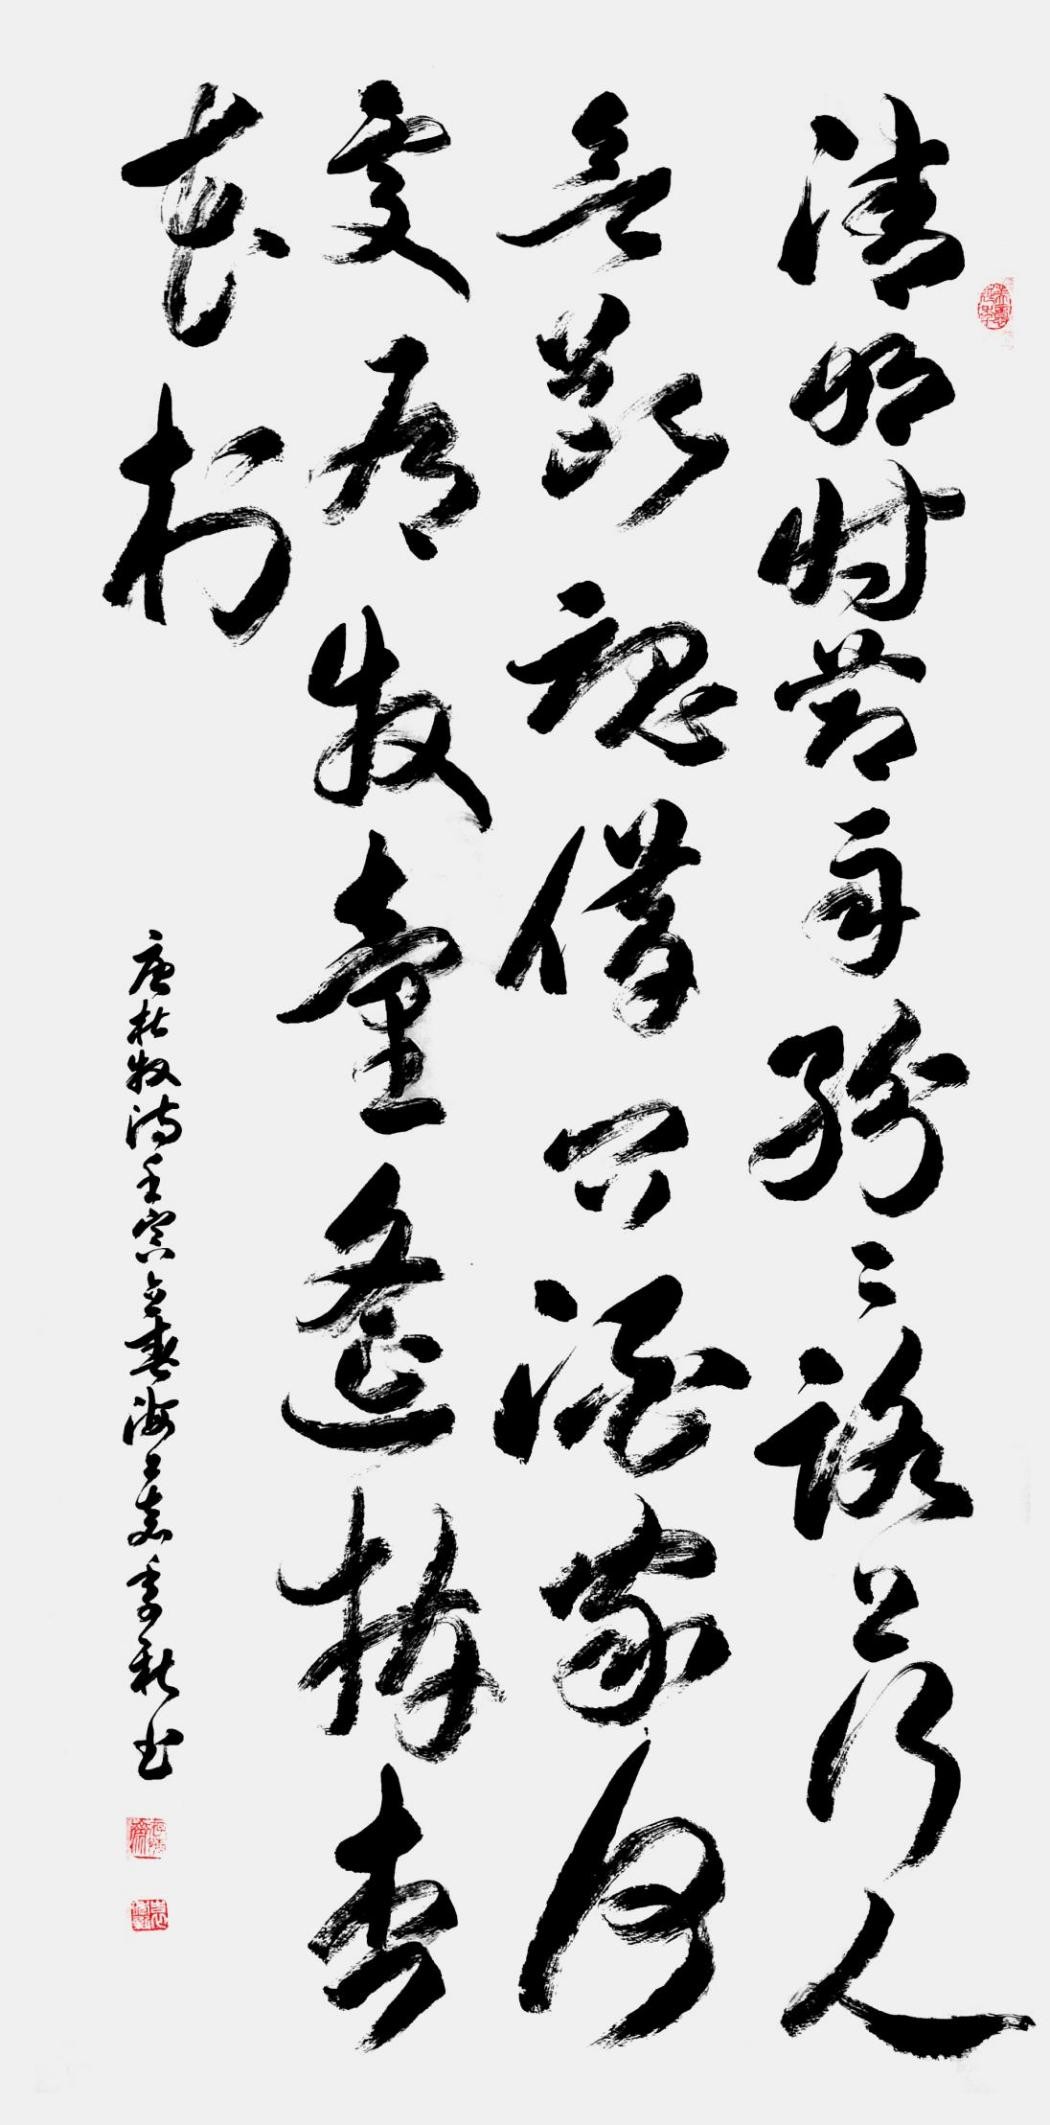 清明時節雨紛紛路上行人
欲斷魂借問酒家何
處有牧童遙指杏
花村
唐杜牧詩壬寅立春海上季秋书